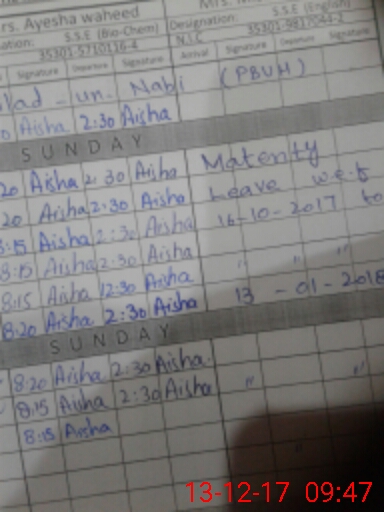 rs. Ayesha waheed Mrs.
ation: S.S.E (Bio-Chem) Designation: S.S.E (English)
35301-5710116-4 N.I.C 35301-9817044-2
Signature Departure Signature Arrival Signature Departure Signature
lad - un - Nabi (PBUH)
Aisha 2:30 Aisha
SUNDAY
20 Aisha 2:30 Aisha Maternity
20 Aisha 2:30 Aisha Leave w.e.f
8:15 Aisha 2:30 Aisha 16-10-2017 to
8:15 Aisha 2:30 Aisha
8:15 Aisha 12:30 Aisha " " "
8:20 Aisha 2:30 Aisha 13 - 01 - 2018
SUNDAY
8:20 Aisha 2:30 Aisha
8:15 Aisha 2:30 Aisha " "
8:15 Aisha
"
13-12-17 09:47